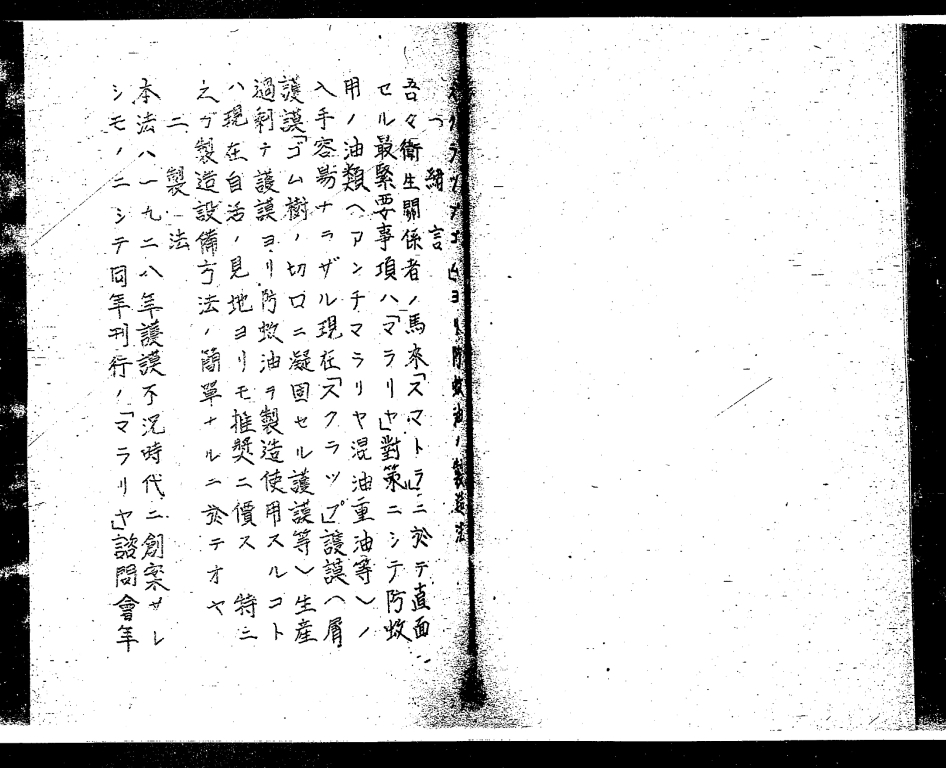 スクラップゴムヨリ防蚊油ノ製造法
一 緒言
吾々衛生關係者ノ馬來「スマトラ」ニ於テ直面
セル最緊要事項ハ「マラリヤ」對策ニシテ防蚊
用ノ油類(アンチマラリヤ混油重油等)ノ
入手容昜ナラザル現在「スクラップ」護謨(屑
護謨「ゴム樹ノ切口ニ凝固セル護謨等)生産
過剰テ護謨ヨリ防蚊油ヲ製造使用スルコト
ハ現在自活ノ見地ヨリモ推奬ニ價ス 特ニ
之ガ製造設備方法ノ簡單ナルニ於テオヤ
二 製法
本法ハ一九二八年護謨不況時代ニ創案サレ
シモノニシテ同年刊行ノ「マラリヤ」諮問會年